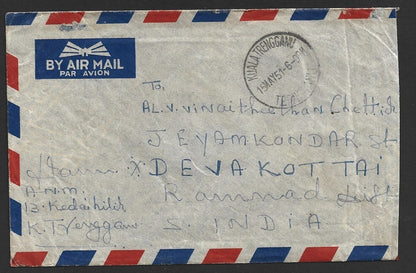 BY AIR MAIL
PAR AVION
KUALA TRENGGANU
19MAY51·6-PM
To
AL.V. Vinaitheethan Chettiar
JEYAMKONDAR St
DEVAKOTTAI
Ramnad Dist
S. INDIA
From
A.N.M.
13. Kedaihilir
K. Trenggan